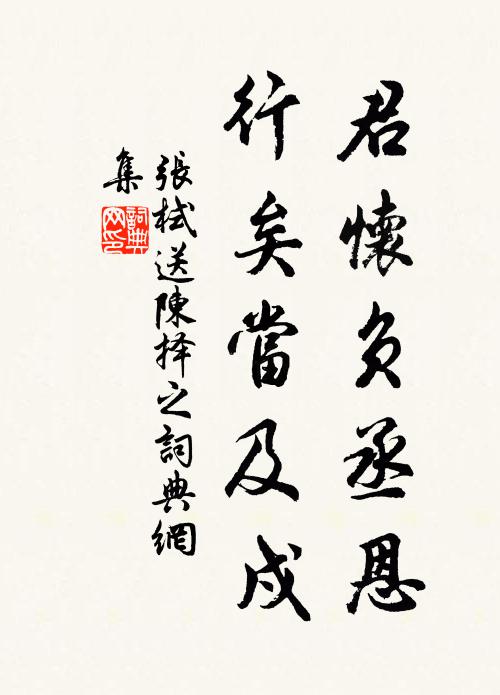 君懷負丞恩
行矣當及戍
張栻送陳择之詞典網
集
詞典
网印